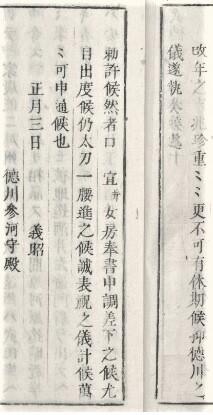 改年之吉兆珍重〻〻更不可有休期候抑德川之
儀遂執奏處
勅許候然者口宣幷女房奉書申調差下之候尤
目出度候仍太刀一腰進之候誠表祝之儀計候萬
〻可申通候也
正月三日
義昭
德川參河守殿